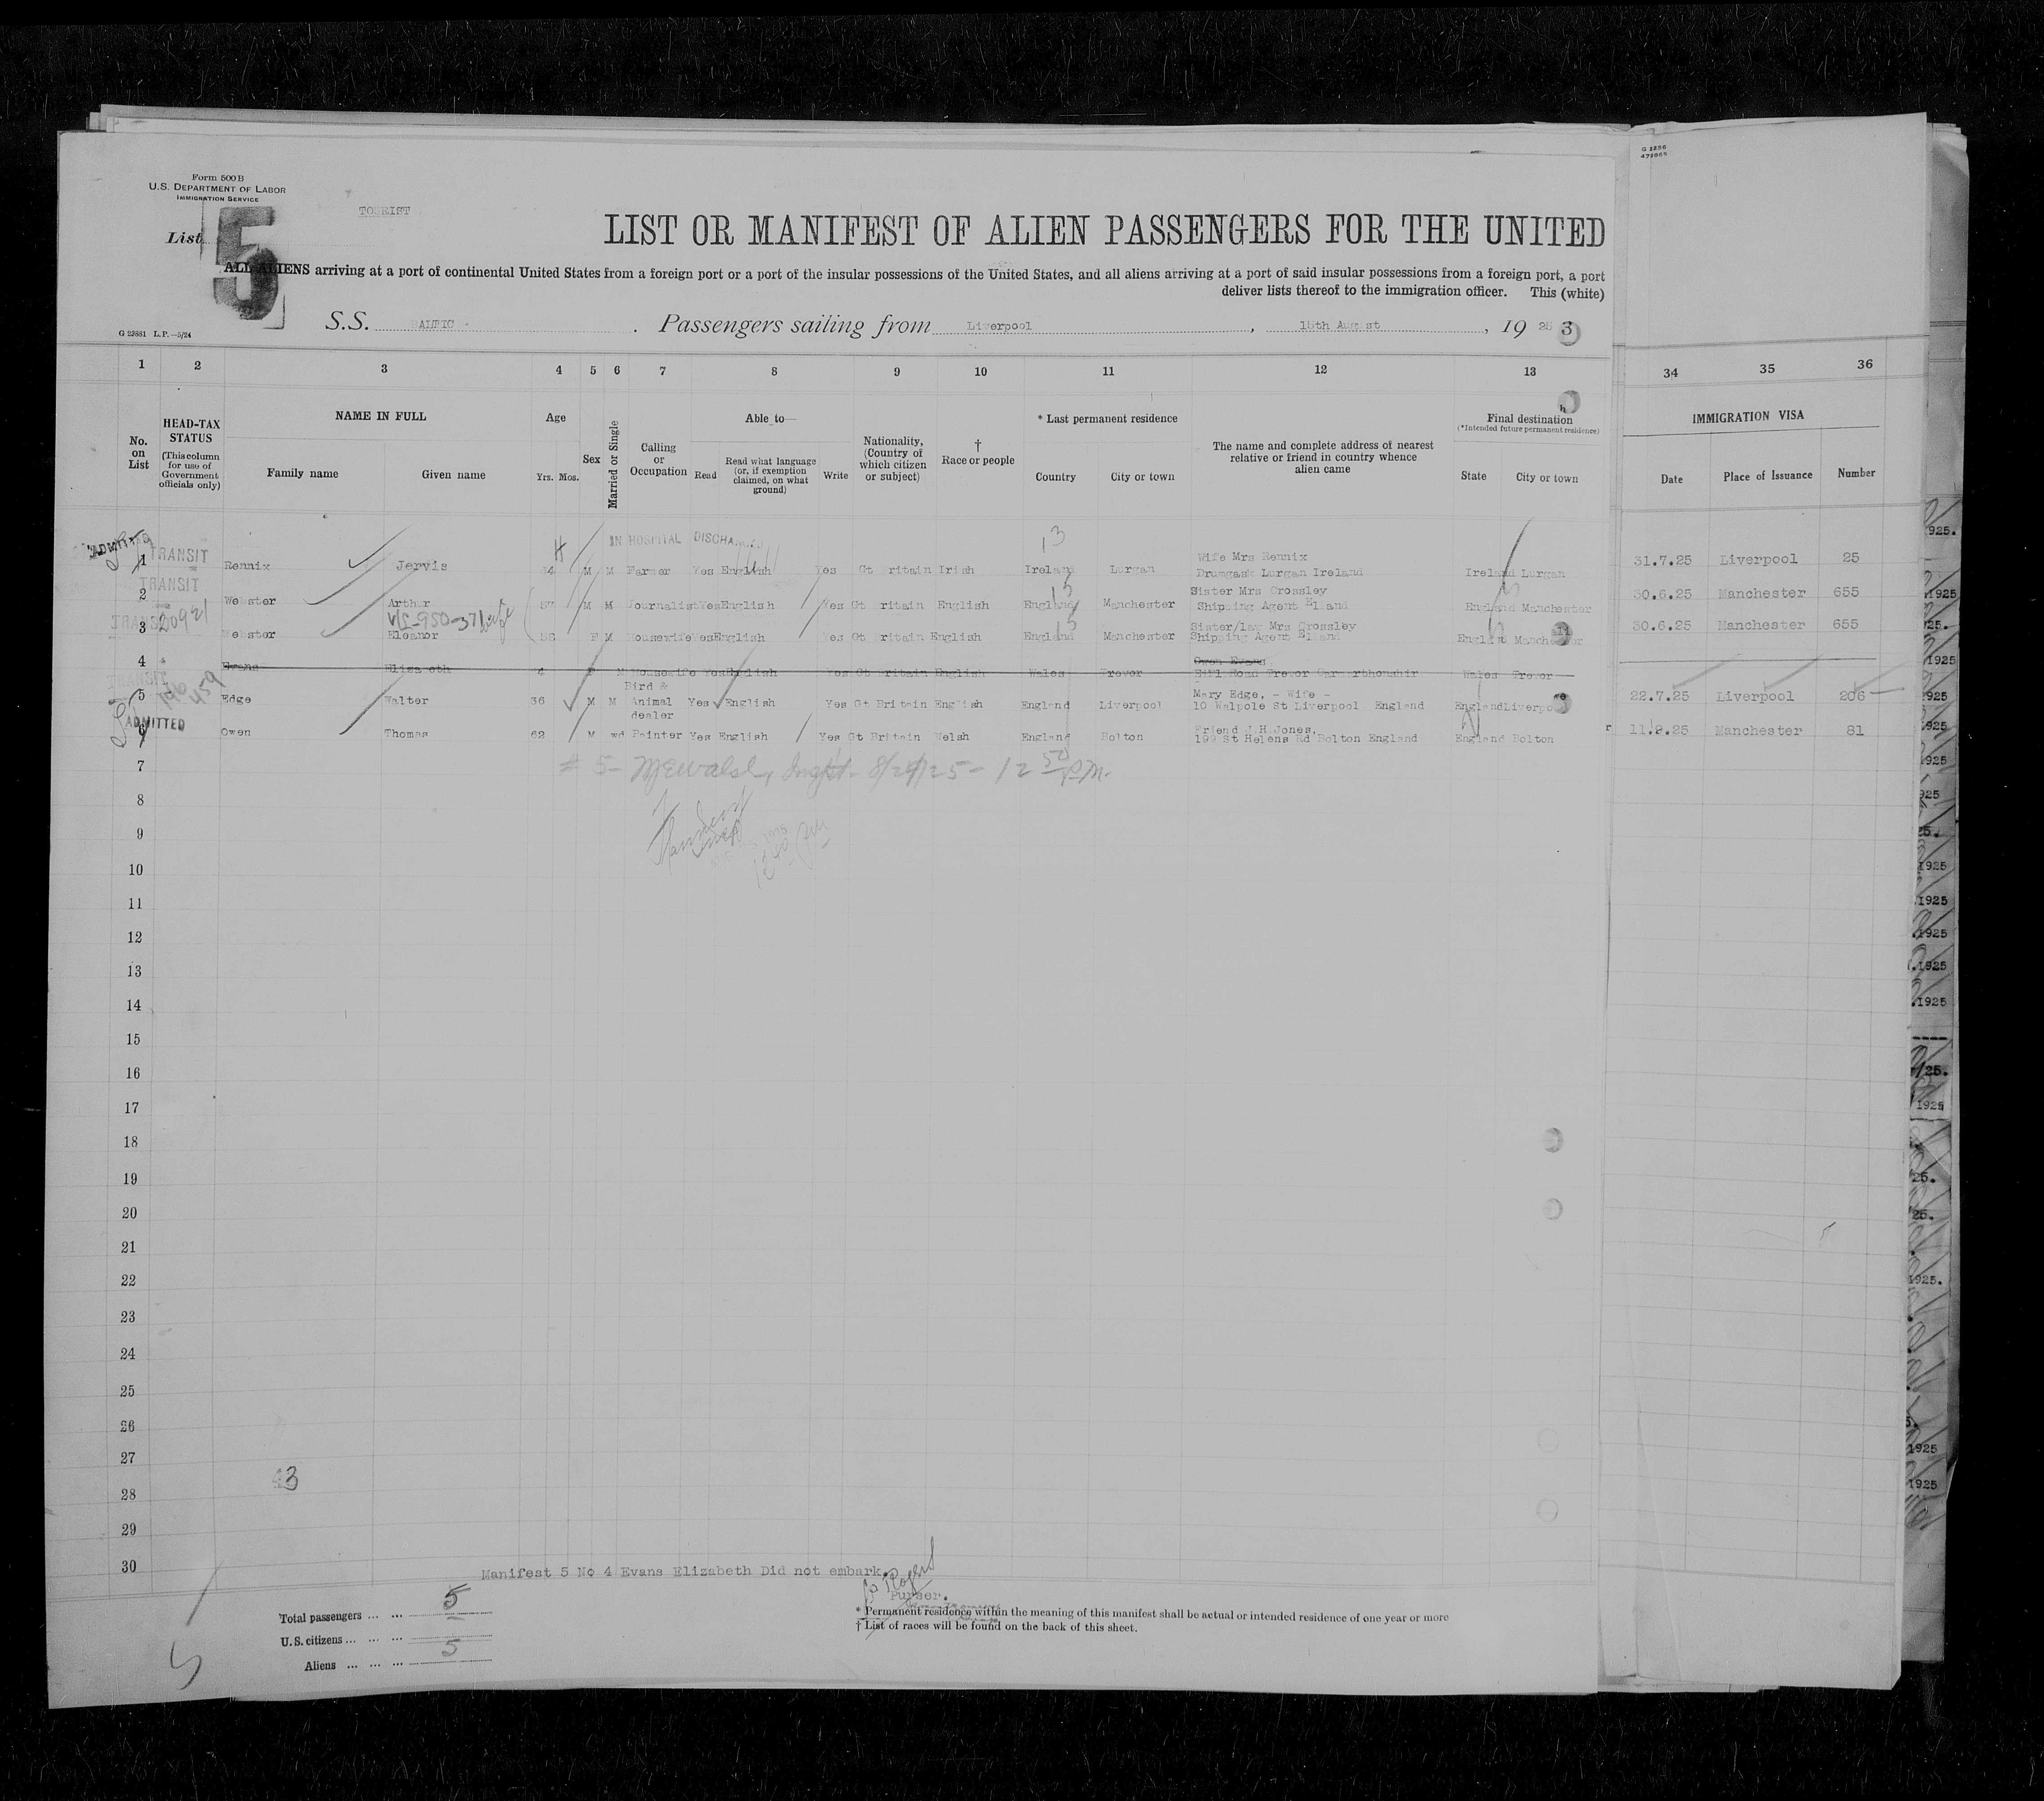 Form 500B
U.S. DEPARTMENT OF LABOR
IMMIGRATION SERVICE
TOURIST
List 5
LIST OR MANIFEST OF ALIEN PASSENGERS FOR THE UNITED
ALL ALIENS arriving at a port of continental United States from a foreign port or a port of the insular possessions of the United States, and all aliens arriving at a port of said insular possessions from a foreign port, a port
deliver lists thereof to the immigration officer. This (white)
S.S. BALTIC . Passengers sailing from Liverpool , 15th August , 19 25 3
G 22881 L.P.—5/24
G 2256
1 2 3 4 5 6 7 8 9 10 11 12 13 34 35 36
No. on List
HEAD-TAX STATUS
(This column for use of Government officials only)
NAME IN FULL
Family name Given name
Age
Yrs. Mos.
Sex
Married or Single
Calling or Occupation
Able to—
Read
Read what language (or, if exemption claimed, on what ground)
Write
Nationality, (Country of which citizen or subject)
† Race or people
* Last permanent residence
Country City or town
The name and complete address of nearest relative or friend in country whence alien came
Final destination
(*Intended future permanent residence)
State City or town
IMMIGRATION VISA
Date Place of Issuance Number
IN HOSPITAL DISCHARGED
13
TRANSIT
Wife Mrs Rennix
1 Rennix Jervis M M Farmer Yes English Yes Gt Britain Irish Ireland Lurgan Drumgask Lurgan Ireland Ireland Lurgan 31.7.25 Liverpool 25
TRANSIT
Sister Mrs Crossley
2 Webster Arthur 57 M M Journalist Yes English Yes Gt Britain English England Manchester Shipping Agent Elland England Manchester 30.6.25 Manchester 655
TRANSIT
Sister/law Mrs Crossley
3 Webster Eleanor 58 F M Housewife Yes English Yes Gt Britain English England Manchester Shipping Agent Elland England Manchester 30.6.25 Manchester 655
Owen Evans
4 Evans Elizabeth F M Housewife Yes English Yes Gt Britain English Wales Trevor Hill Road Trevor Wales Trevor
TRANSIT
Bird & Mary Edge, - Wife -
5 Edge Walter 36 M M Animal Yes English Yes Gt Britain English England Liverpool 10 Walpole St Liverpool England England Liverpool 22.7.25 Liverpool 206
dealer
ADMITTED
Friend J.H.Jones,
6 Owen Thomas 62 M wd Painter Yes English Yes Gt Britain Welsh England Bolton 199 St Helens Rd Bolton England England Bolton 11.8.25 Manchester 81
7
8
9
10
11
12
13
14
15
16
17
18
19
20
21
22
23
24
25
26
27
28
29
30
Manifest 5 No 4 Evans Elizabeth Did not embark.
Purser.
Total passengers ... ... 5
U.S. citizens ... ... ...
Aliens ... ... ... 5
* Permanent residence within the meaning of this manifest shall be actual or intended residence of one year or more
† List of races will be found on the back of this sheet.